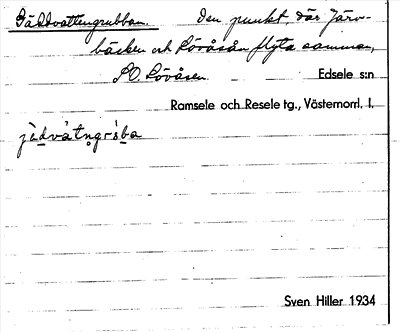 Gäddvattengrubban. Den punkt, där Järv-
bäcken och Lövåsån flyta samman,
SO Lövåsen. Edsele s:n
Ramsele och Resele tg., Västernorrl. l.
Sven Hiller 1934